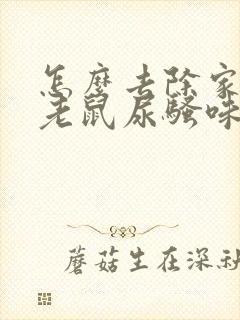 怎麼去除家
老鼠尿騷味
蘑菇生在深秋